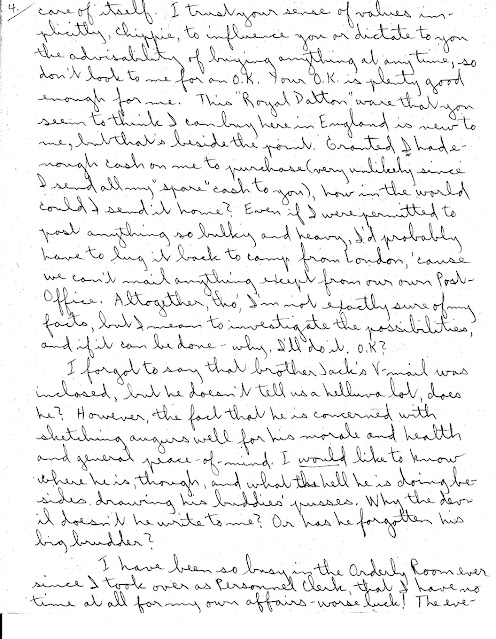 4.
care of itself. I trust your sense of values im-
plicitly, chippie, to influence you or dictate to you
the advisability of buying anything at any time, so
don't look to me for an O.K. Your O.K. is plenty good
enough for me. This "Royal Dalton" ware that you
seem to think I can buy here in England is new to
me, but that's beside the point. Granted I had e-
nough cash on me to purchase (very unlikely since
I send all my "spare" cash to you), how in the world
could I send it home? Even if I were permitted to
post anything so bulky and heavy, I'd probably
have to lug it back to camp from London, 'cause
we can't mail anything except from our own Post-
Office. Altogether, tho', I'm not exactly sure of my
facts, but I mean to investigate the possibilities,
and if it can be done - why, I'll do it. O.K?
I forgot to say that brother Jack's V-mail was
inclosed, but he doesn't tell us a helluva lot, does
he? However, the fact that he is concerned with
sketching augurs well for his morale and health
and general peace-of-mind. I would like to know
where he is, though, and what the hell he is doing be-
sides drawing his buddies' pusses. Why the dev-
il doesn't he write to me? Or has he forgotten his
big brudder?
I have been so busy in the Orderly Room ever
since I took over as Personnel Clerk, that I have no
time at all for my own affairs - worse luck! The eve-